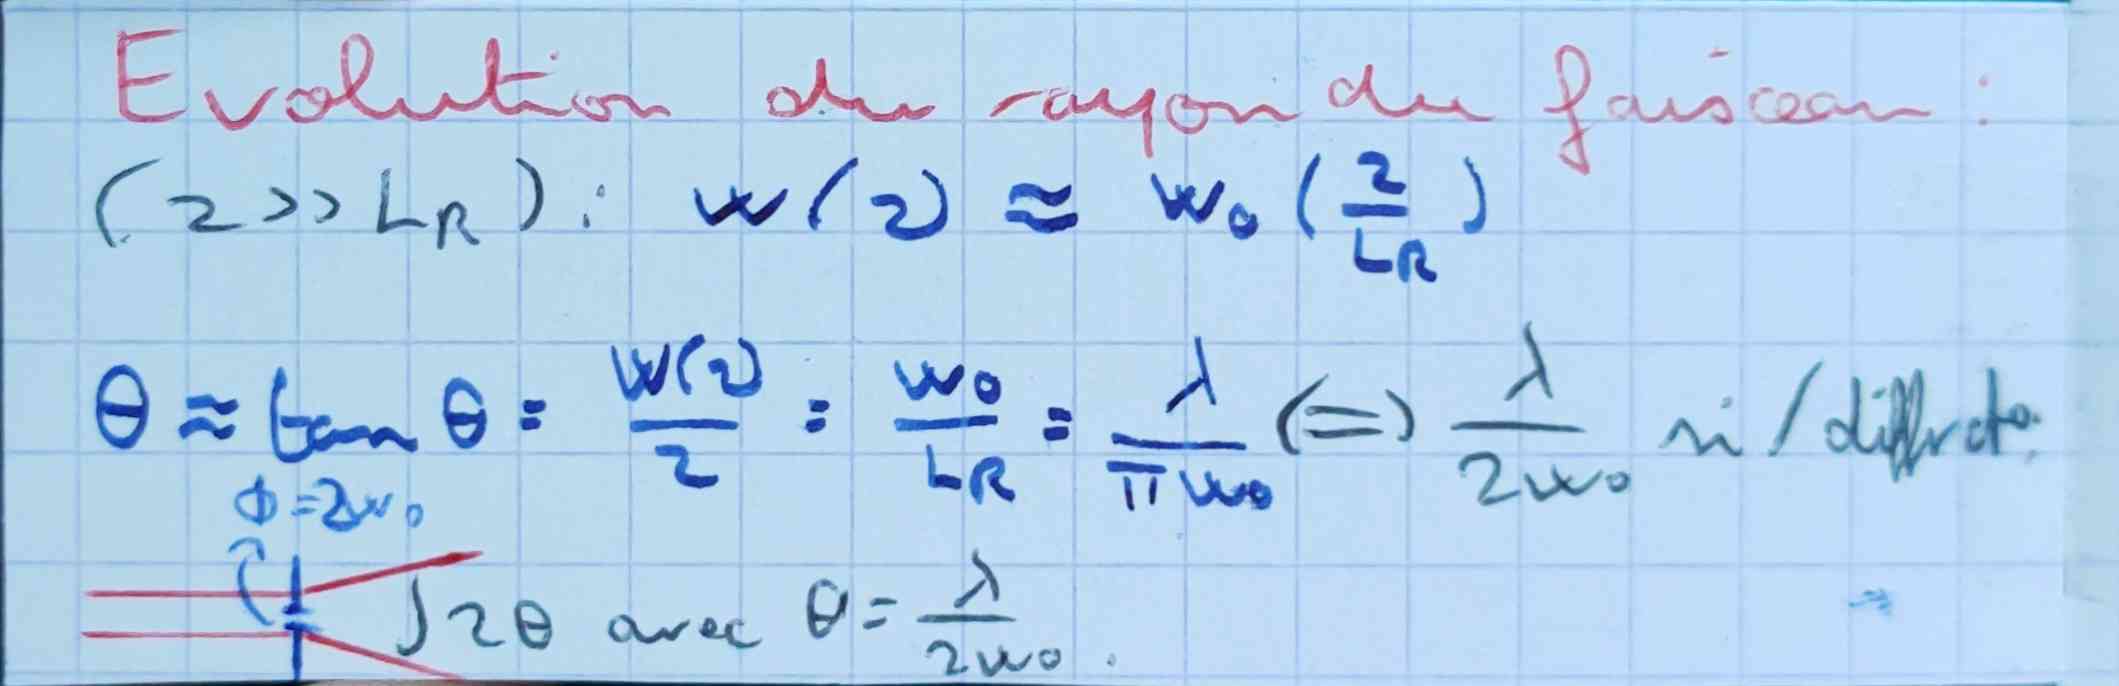 Evolution du rayon du faisceau :
(z >> L_R) : w(z) ≈ w₀ (z/L_R)
θ ≈ tan θ = w(z)/z = w₀/L_R = λ/(π w₀) (=) λ/(2w₀) si / diffracto.
Φ = 2w₀
2θ avec θ = λ/(2w₀).